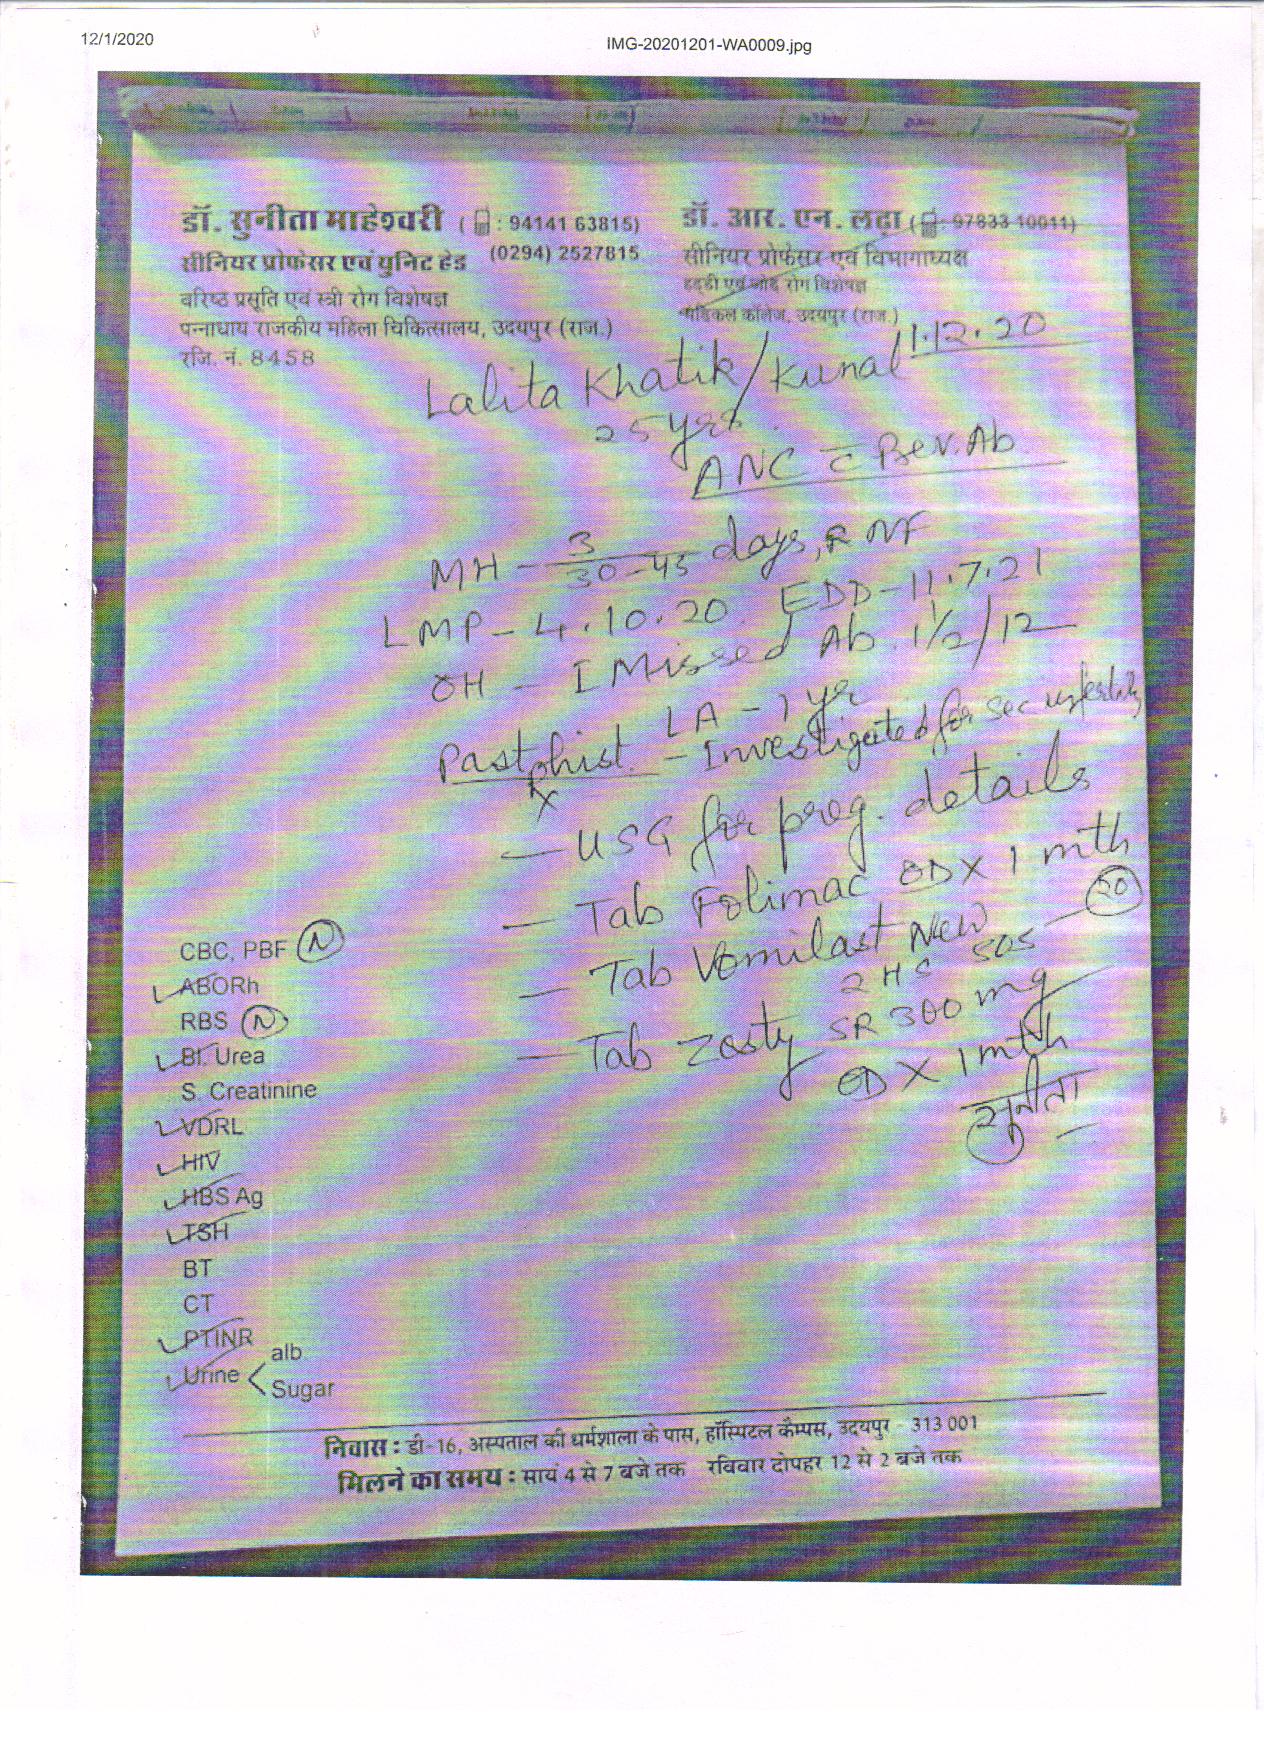 12/1/2020
IMG-20201201-WA0009.jpg
डॉ. सुनीता माहेश्वरी ( : 94141 63815)
सीनियर प्रोफेसर एवं युनिट हेड (0294) 2527815
वरिष्ठ प्रसूति एवं स्त्री रोग विशेषज्ञ
पन्नाधाय राजकीय महिला चिकित्सालय, उदयपुर (राज.)
रजि. नं. 8458
डॉ. आर. एन. लढ़ा
सीनियर प्रोफेसर एवं विभागाध्यक्ष
हड्डी एवं जोड़ रोग विशेषज्ञ
मेडिकल कॉलेज, उदयपुर (राज.)
1.12.20
Lalita Khatik/Kunal
25 yrs.
ANC c̄ Prev. Ab.
MH - 3/30-45 days, R NF
LMP - 4.10.20. EDD - 11.7.21
OH - I Missed Ab. 1½/12
LA - 1 yr
Past hist. - Investigated for sec infertility
- USG for preg. details
- Tab Folimac OD X 1 mth
- Tab Vomilast New
2 HS SOS - 20
- Tab Zosty SR 300 mg
OD X 1 mth
सुनीता
CBC, PBF N
ABORh
RBS N
Bl. Urea
S. Creatinine
VDRL
HIV
HBS Ag
TSH
BT
CT
PTINR
Urine < alb
Sugar
निवास : डी-16, अस्पताल की धर्मशाला के पास, हॉस्पिटल कैम्पस, उदयपुर - 313 001
मिलने का समय : सायं 4 से 7 बजे तक रविवार दोपहर 12 से 2 बजे तक